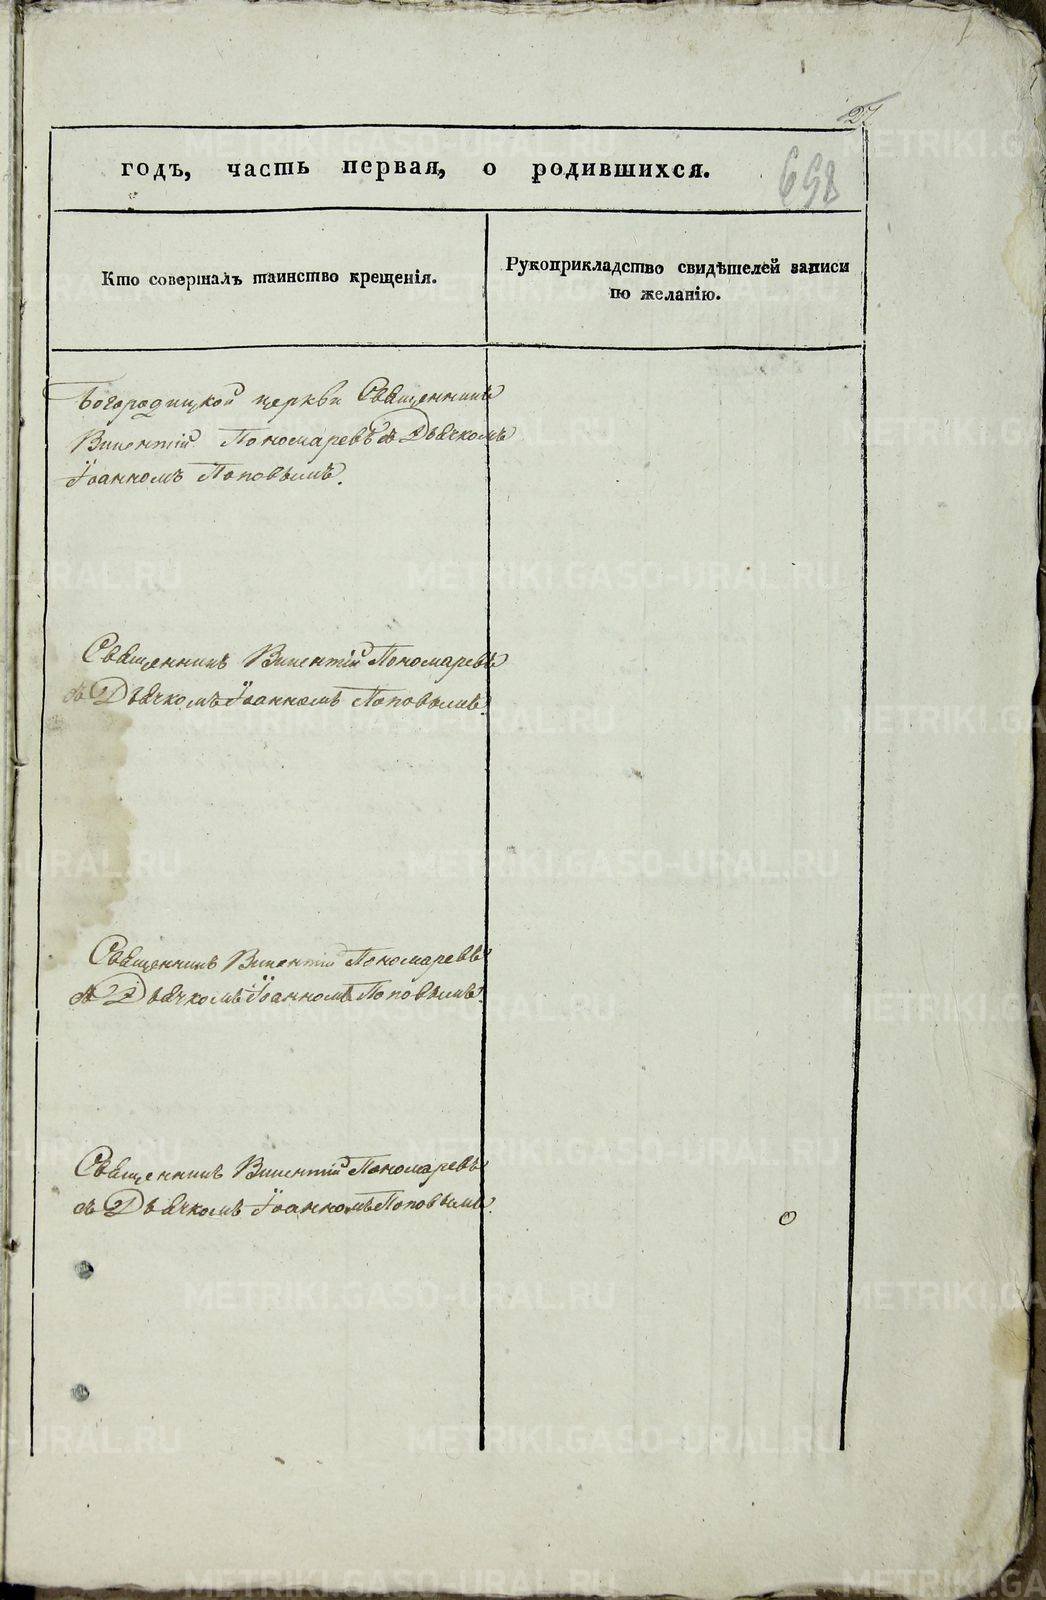 27
годъ, часть первая, о родившихся.
658
Кто совершалъ таинство крещенія.
Рукоприкладство свидѣтелей записи
по желанію.
Богородицкой церкви Священникъ
Викентій Пономаревъ съ Дьячкомъ
Іоанномъ Поповымъ.
Священникъ Викентій Пономаревъ
съ Дьячкомъ Іоанномъ Поповымъ.
Священникъ Викентій Пономаревъ
съ Дьячкомъ Іоанномъ Поповымъ.
Священникъ Викентій Пономаревъ
съ Дьячкомъ Іоанномъ Поповымъ.
METRIKI.GASO-URAL.RU